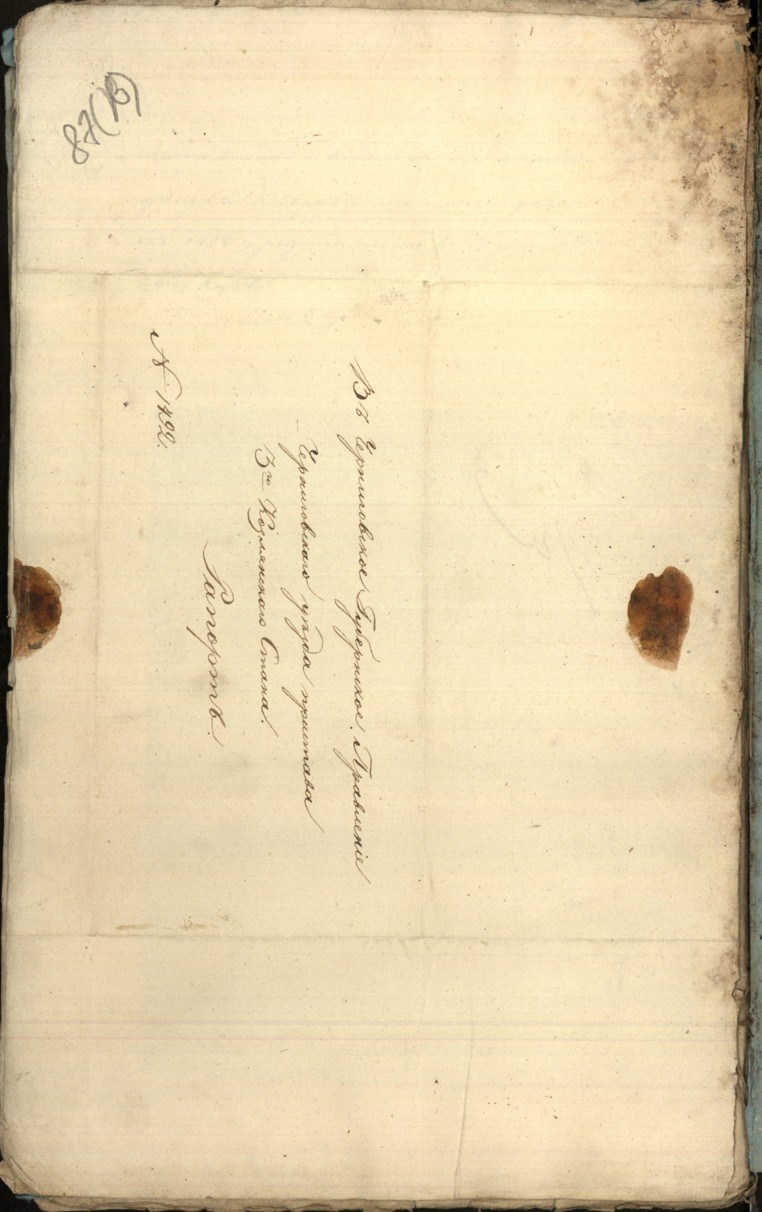 Въ Черниговское Губернское Правленіе
Черниговскаго уѣзда пристава
3го Козлянскаго Стана.
Рапортъ.
N 1492.
87